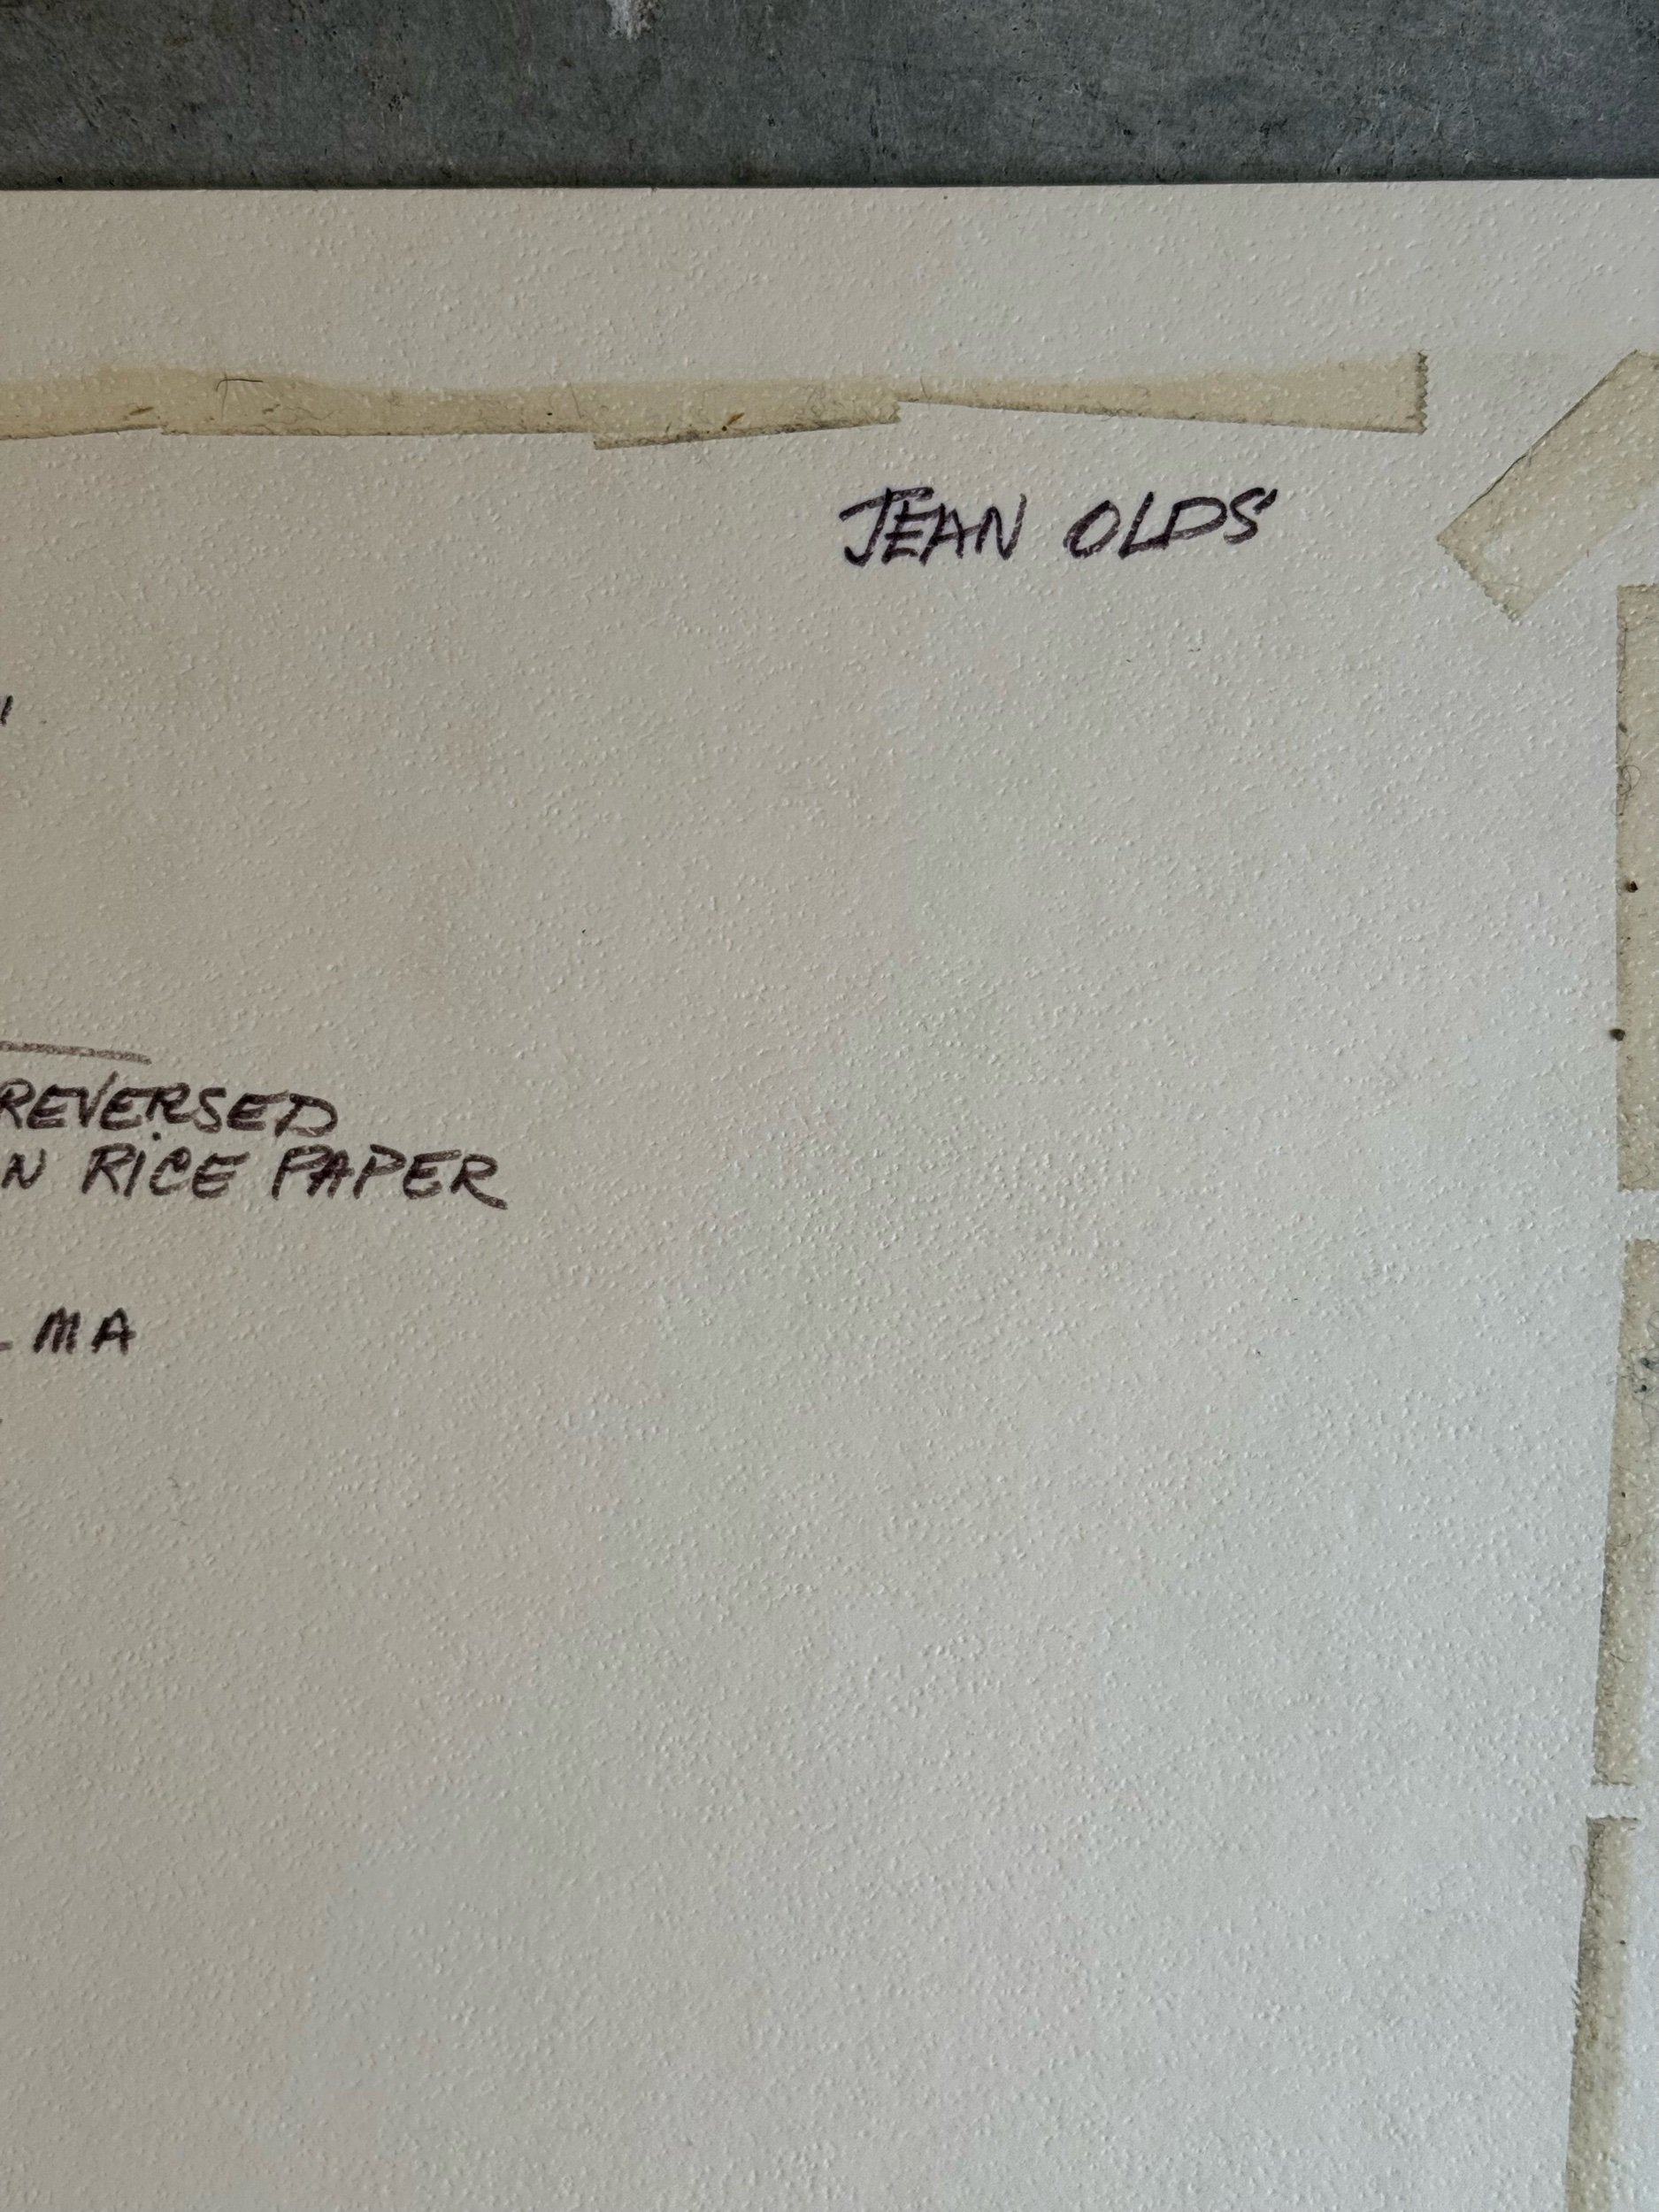 JEAN OLDS
REVERSED
N RICE PAPER
MA